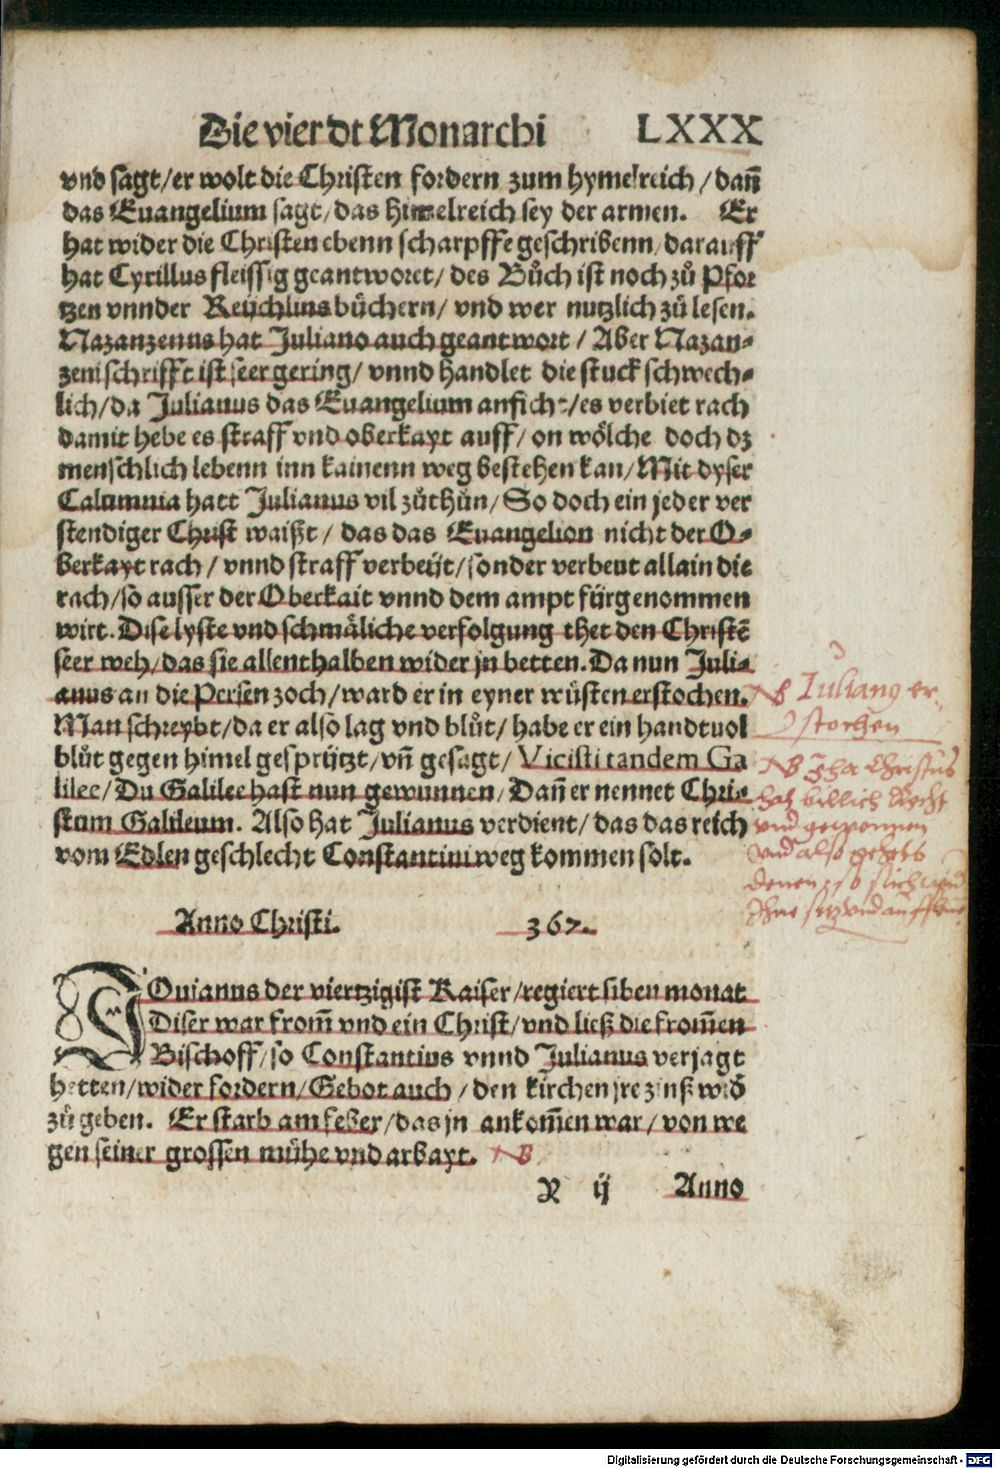 Die vier dt Monarchi LXXX
vnd sagt/er wolt die Christen fordern zum hymelreich/dañ
das Euangelium sagt/das himelreich sey der armen. Er
hat wider die Christen ebenn scharpffe geschribenn/darauff
hat Cyrillus fleissig geantwortet/des Bůch ist noch zů Pfor
tzen vnnder Reüchlins bůchern/vnd wer nutzlich zů lesen.
Nazanzenus hat Juliano auch geantwort/Aber Nazan-
zeni schrifft ist seer gering/vnnd handlet die stuck schwech-
lich/da Julianus das Euangelium anficht/es verbiet rach
damit hebe es straff vnd oberkayt auff/on wölche doch dz
menschlich lebenn inn kainenn weg bestehen kan/Mit dyser
Calumnia hatt Julianus vil zůthůn/So doch ein jeder ver
stendiger Christ waißt/das das Euangelion nicht der O-
berkayt rach/vnnd straff verbeüt/sonder verbeut allain die
rach/so ausser der Oberkait vnnd dem ampt fürgenommen
wirt. Dise lyste vnd schmäliche verfolgung thet den Christē
seer weh/das sie allenthalben wider jn betten. Da nun Juli-
anus an die Persen zoch/ward er in eyner wüsten erstochen.
Man schreybt/da er also lag vnd blůt/habe er ein handtuol
blůt gegen himel gesprützt/vñ gesagt/Vicisti tandem Ga
lilee/Du Galilee hast nun gewunnen/Dañ er nennet Chri-
stum Galileum. Also hat Julianus verdient/das das reich
vom Edlen geschlecht Constantini weg kommen solt.
NB Iulianus er-
stochen
NB Jha Christus
hatt billich Recht
vnd gewonnen
vnd also gehets
denen so sich wid
Anno Christi. 367.
IOuianus der viertzigist Kaiser/regiert siben monat
Diser war from̄ vnd ein Christ/vnd ließ die from̄en
Bischoff/so Constantius vnnd Julianus verjagt
hetten/wider fordern/Gebot auch/den kirchen jre zinß wid̄
zů geben. Er starb am feber/das jn ankom̄en war/von we
gen seiner grossen mühe vnd arbayt. NB
X ij Anno
Digitalisierung gefördert durch die Deutsche Forschungsgemeinschaft - DFG